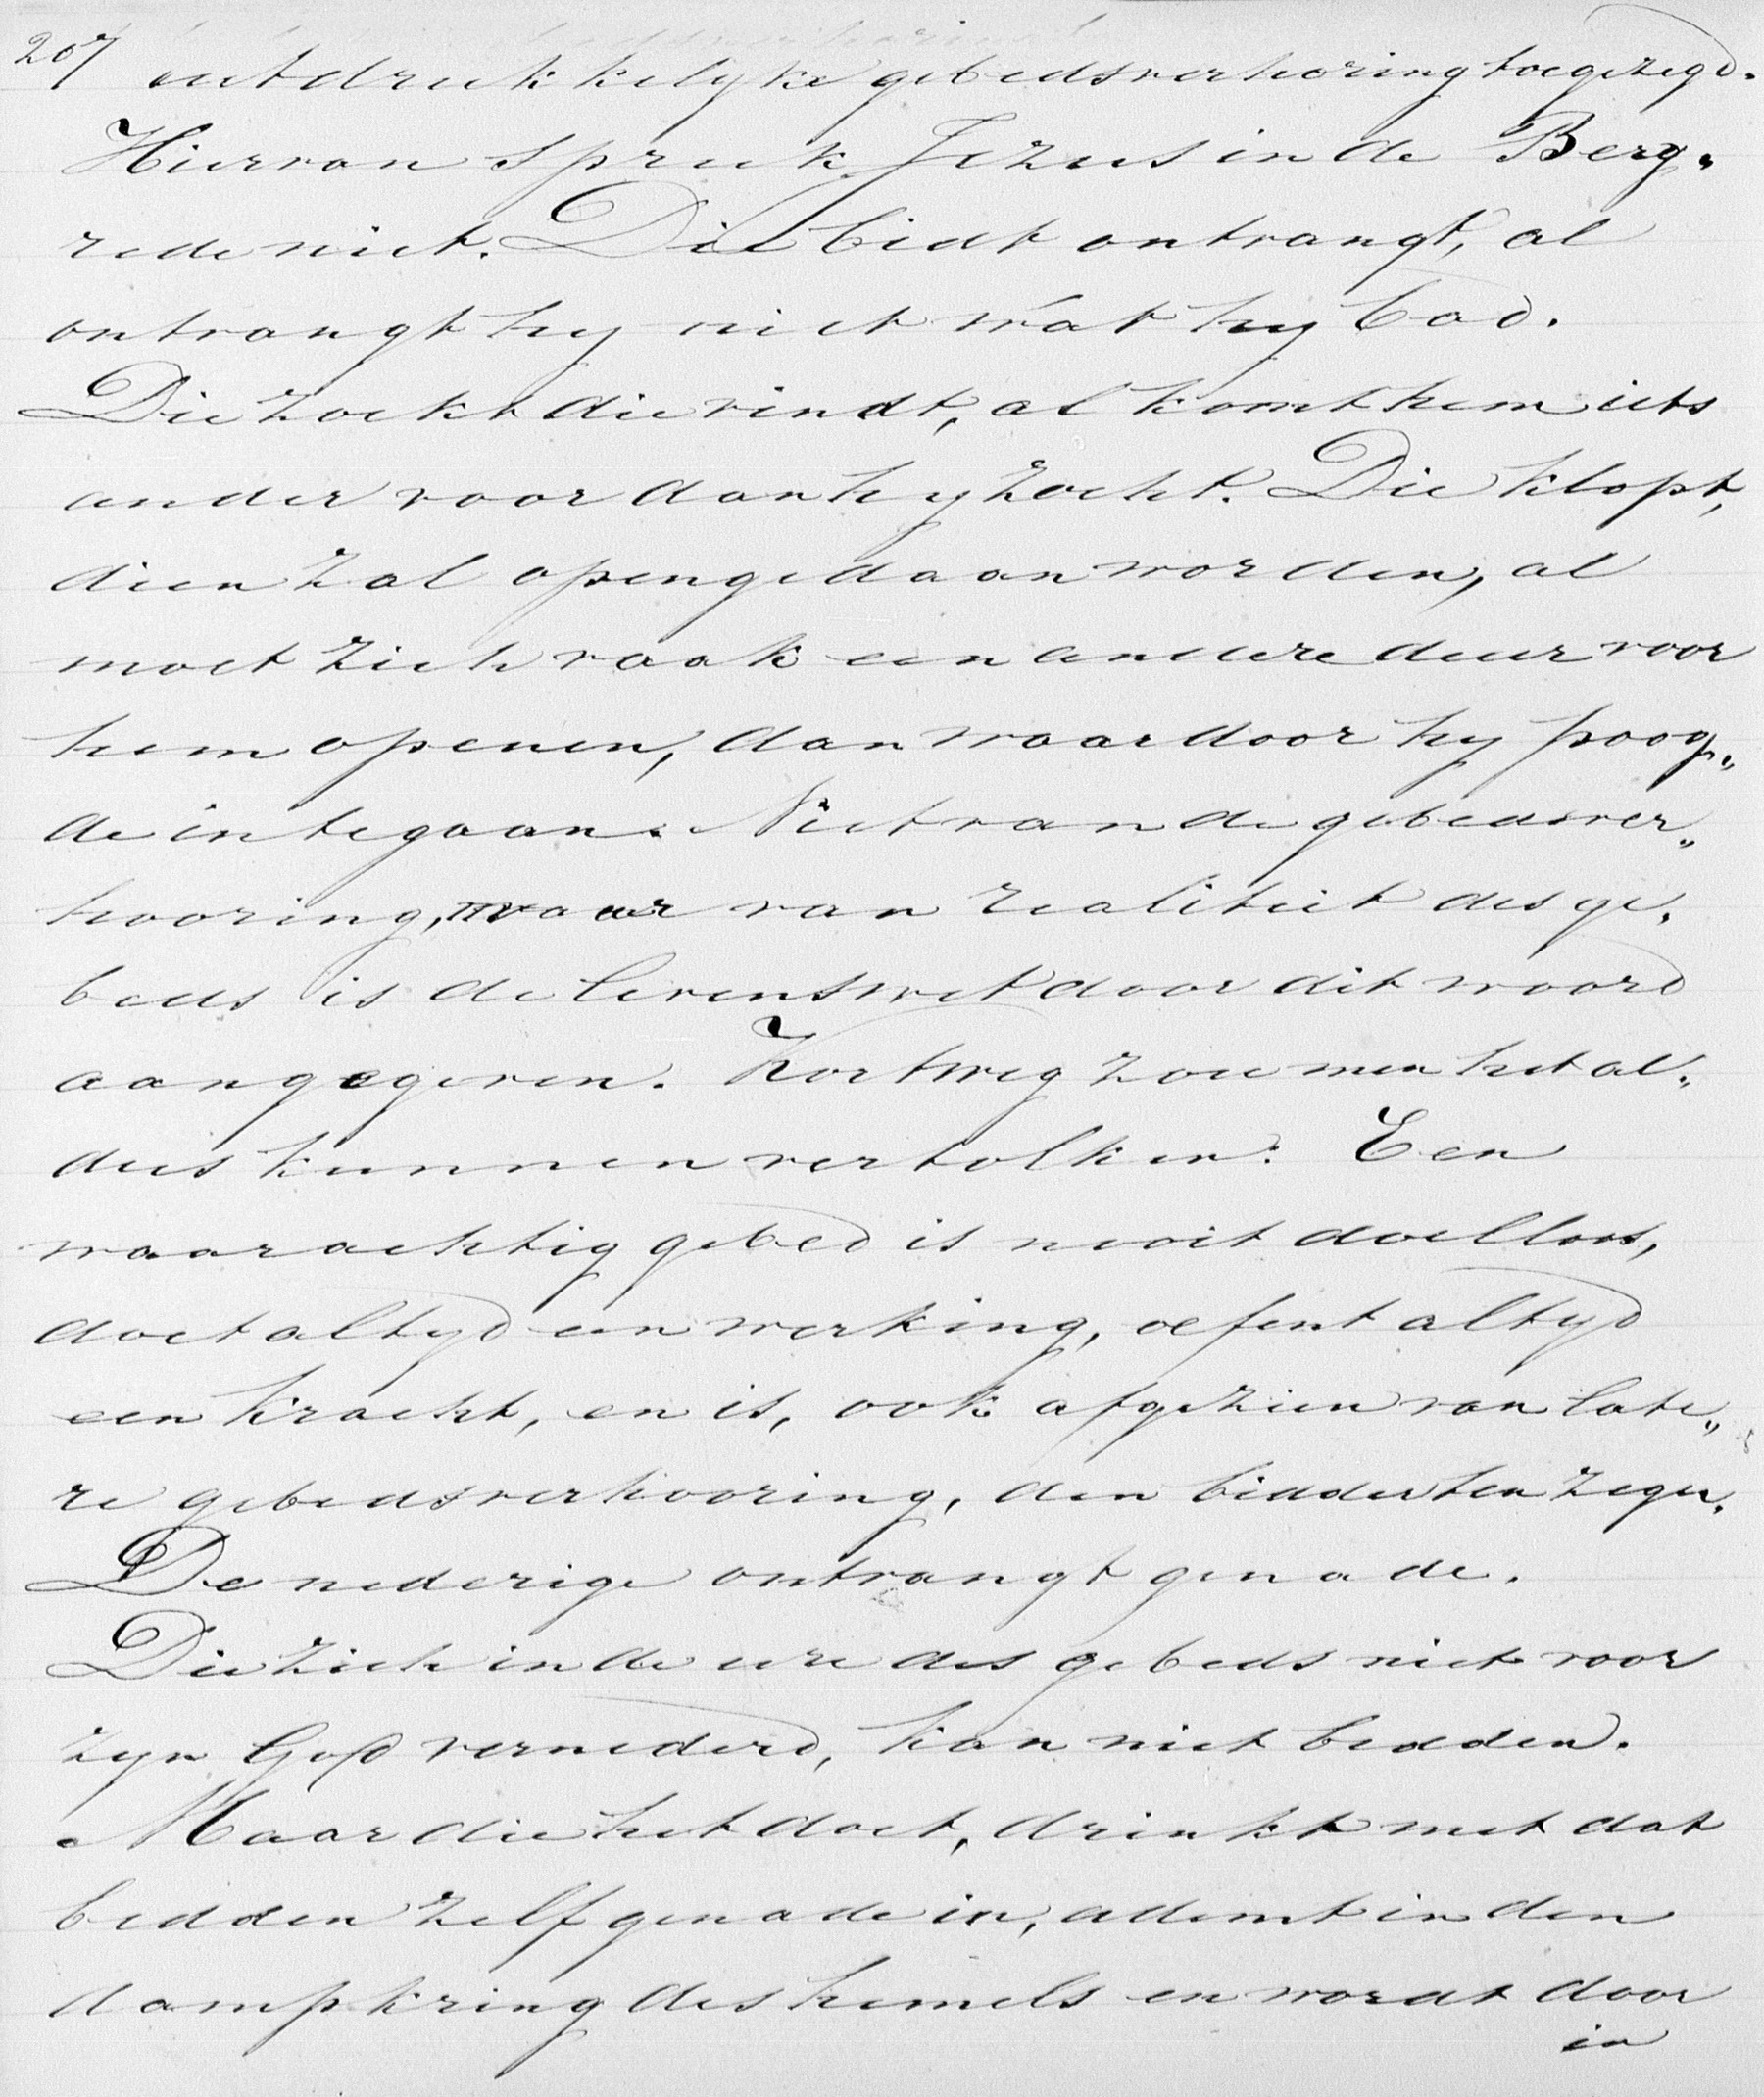 207 uitdrukkelyke gebedsverhoring toegezegd.
Hiervan spruk Jezus in de Berg„
rede niet. Die bidt ontvangt, al
ontvangt hy niet wát hy bad.
Die zoekt die vindt, al komt hem iets
ander voor dan hy zocht. Die klopt,
dien zal opengedaan worden, al
moet zich vaak een andere deur voor
hem openen, dan waardoor hy poog„
de in te gaan. Niet van de gebedsver„
hooring, maar van realiteit des ge„
beds is de levenswet door dit woord
aangegeven. Kortweg zou men het al„
dus kunnen vertolken: Een
waarachtig gebed is nooit doelloos,
doet altyd een werking, oefent altyd
een kracht, en is, ook afgezien van late„
re gebedsverhooring, den bidder ten zegen.
De nederige ontvangt genade.
Die zich in de ure des gebeds niet voor
zyn God vernederd, kan niet bidden.
Maar die het doet, drinkt met dat
bidden zelf genade in, ademt in den
dampkring des hemels en wordt door
in